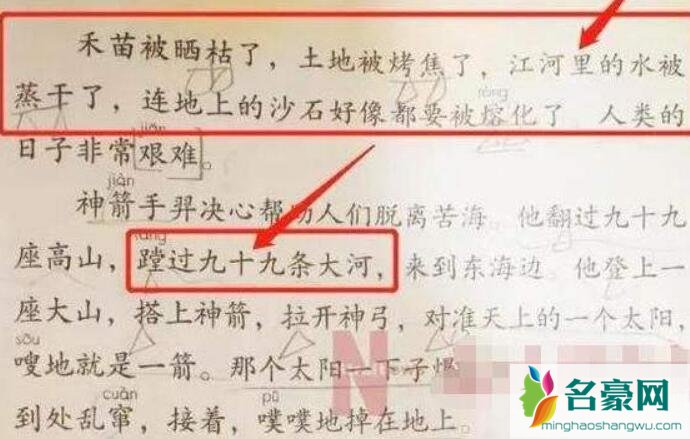 禾苗被晒枯了，土地被烤焦了，江河里的水被
蒸干了，连地上的沙石好像都要被熔化了 人类的
róng
日子非常艰难。
jiān
神箭手羿决心帮助人们脱离苦海 他翻过九十九
jiàn
座高山，蹚过九十九条大河，来到东海边 他登上一
tāng
座大山，搭上神箭，拉开神弓，对准天上的一个太阳，
嗖地就是一箭。那个太阳一下子
sōu
到处乱窜，接着，噗噗地掉在地上。
cuàn
pū
N
名豪网
minghaoshangwu.com